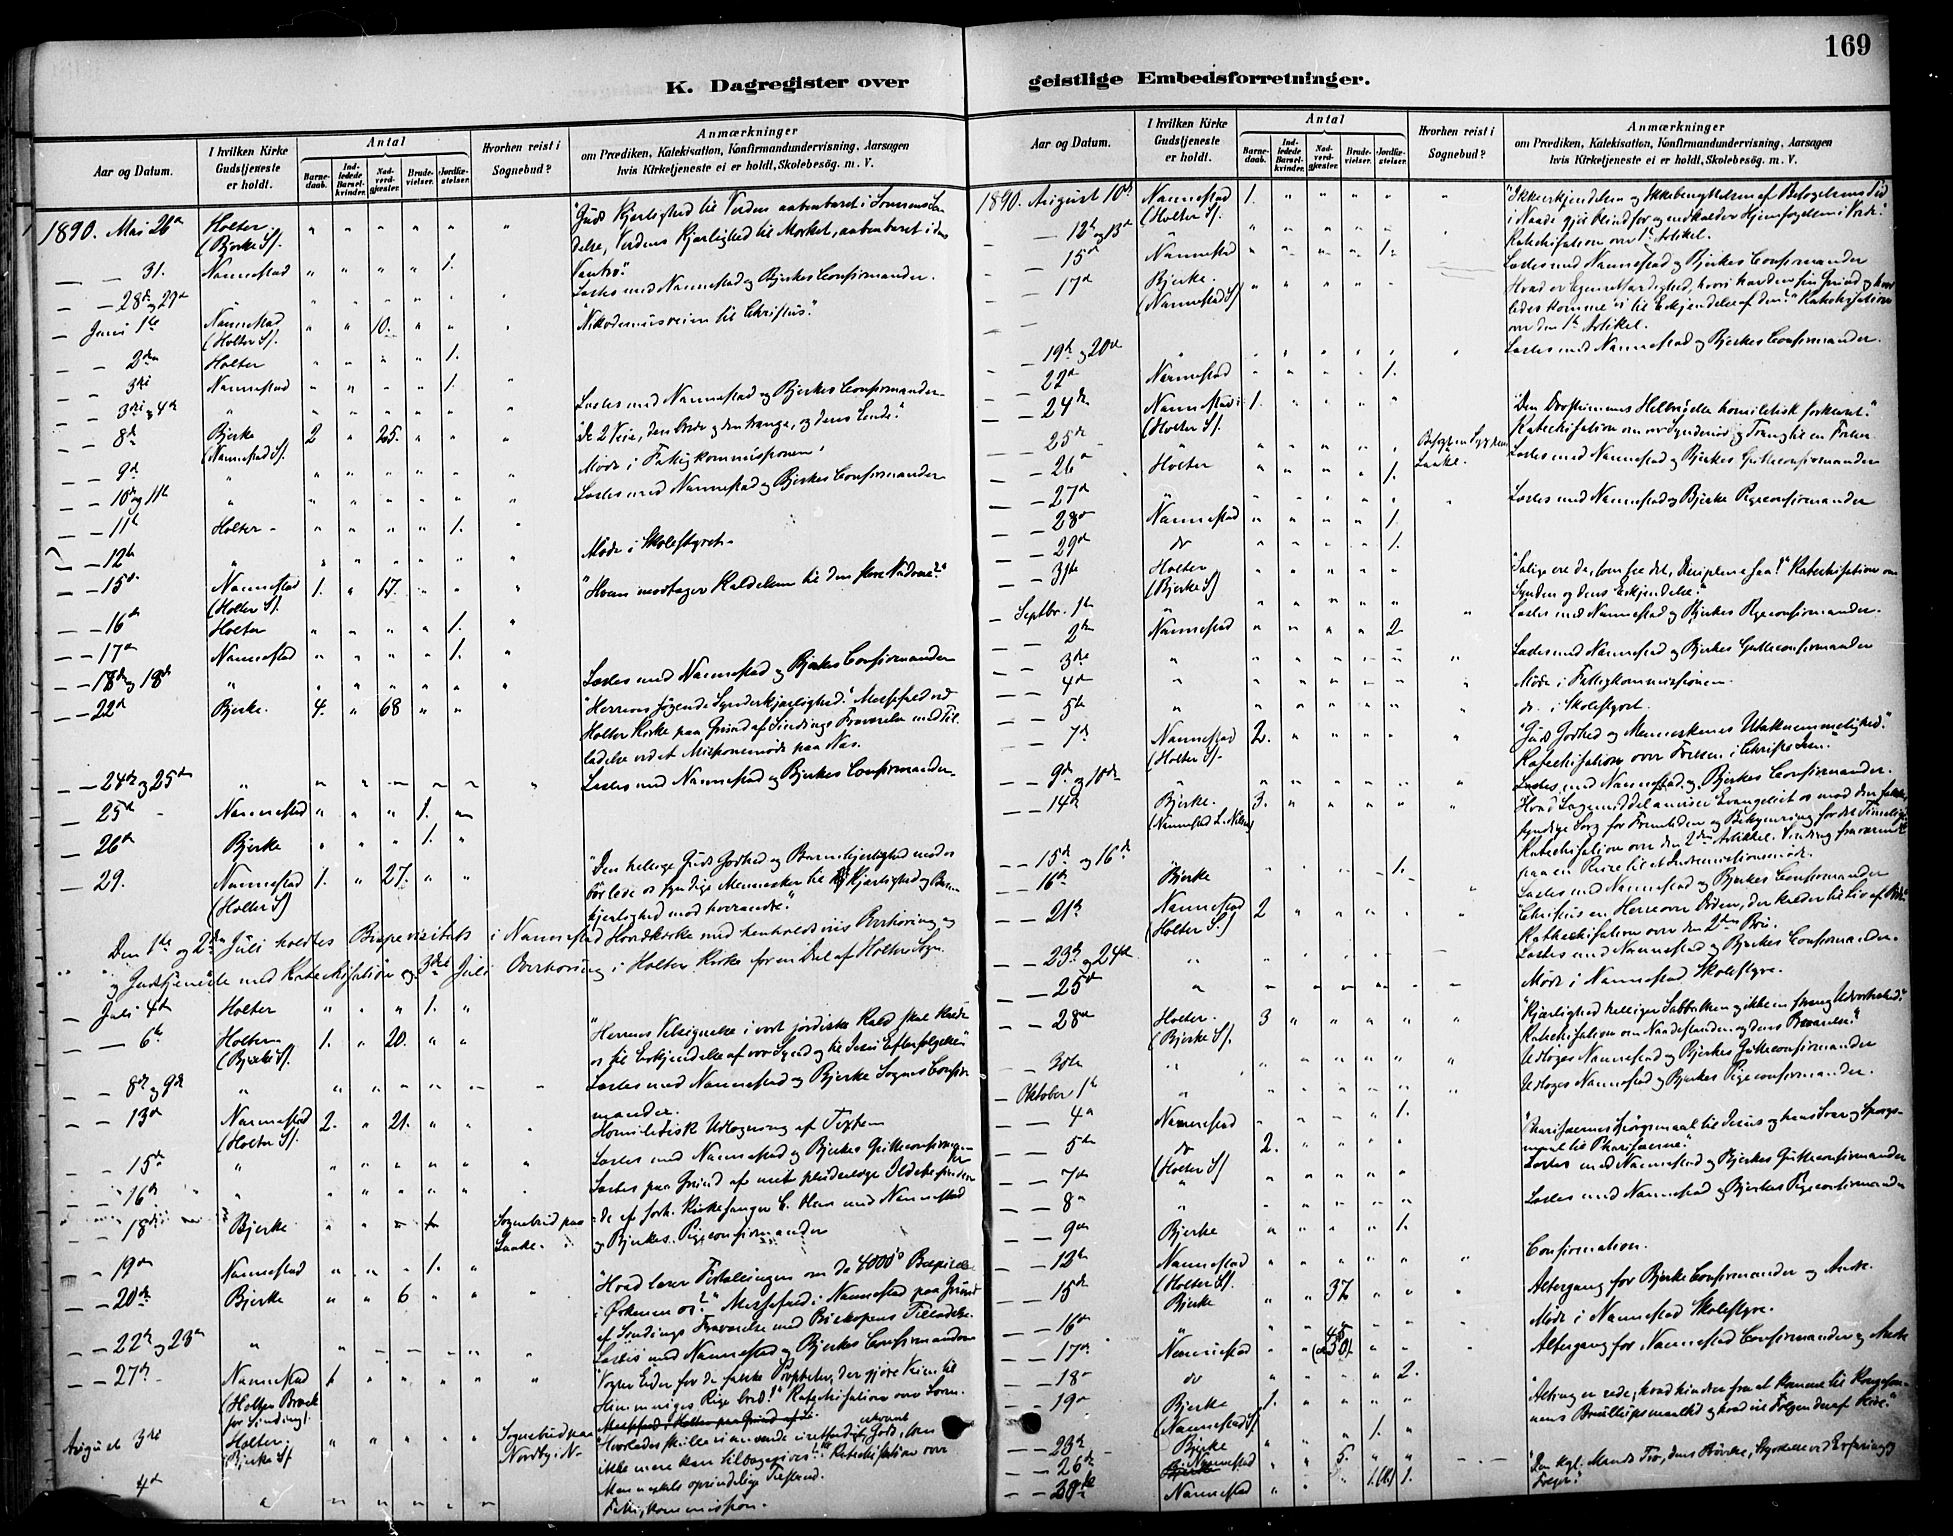 169
K. Dagregister over
geistlige Embedsforretninger.
Aar og Datum.
I hvilken Kirke Gudstjeneste er holdt.
Antal
Barnedaab.
Indledede Barselkvinder.
Nadverdgjester.
Brudevielser.
Jordfæstelser.
Hvorhen reist i Sognebud?
Anmærkninger
om Prædiken, Katekisation, Konfirmandundervisning, Aarsagen
hvis Kirketjeneste ei er holdt, Skolebesög. m. V.
1890. Mai 26de Holter (Bjerke S). " " " " " " "Guds Kjærlighed til Verden aabenbaret i Sønnens Sendelse, Verdens Kjærlighed til Mørket, aabenbaret i dens Vantro."
31. Nannestad " " " " 1.
28de og 29de " " " " " " Læstes med Nannestad og Bjerkes Confirmander.
Juni 1ste Nannestad (Holter S). " " 10. " " " Nikodemusveien til Christus."
2den Holter " " " " 1.
3die Nannestad " " " " 1. "
3die og 4de " " " " " " " Læstes med Nannestad og Bjerkes Confirmander
8de Bjerke (Nannestad S). 2 " 25. " " " "De 2 Veie, den brede og den trange, og deres Ende."
9de " " " " " " " Møde i Fattigkommissionen
10de og 11te " " " " " " " Læstes med Nannestad og Bjerkes Confirmander
11te Holter " " " " 1. "
12te " " " " " " " Møde i Skolestyret
15de Nannestad (Holter S). 1. " 17. " " " "Hvem modtager Kaldelsen til den store Nadvere?"
16de Holter " " " " 1. "
17de Nannestad " " " " 1. "
18de og 18de " " " " " " " Læstes med Nannestad og Bjerkes Confirmander
22de Bjerke. 4. " 68 " " "Herrens søgende Synderkjærlighed." Messefald ved Holter Kirke paa Grund af Sindings Fraværelse med Tilladelse ved et Missionsmøde paa Næs.
24de og 25de " " " " " " " Læstes med Nannestad og Bjerkes Confirmander
25de Nannestad " " " 1. "
26de Bjerke " " " 1. "
29. Nannestad (Holter S) 1. " 27. " " "Den hellige Guds Godhed og Barmhjertighed mod os bør lede os syndige Mennesker til Kjærlighed og Barmhjertighed mod hverandre."
Den 1ste og 2den Juli holdtes Bispevisitats i Nannestad Hovedkirke med henholdsvis Overhøring og
og Gudstjeneste med Katechisation og 3die Juli Overhøring i Holter Kirke for en Del af Holter Sogn.
Juli 4de Holter " " " 1. "
6te Holter (Bjerke S). 1. " 20. " " "Herrens Velsignelse i vort jordiske Kald skal lede os til Erkjendelse af vor Synd og til Jesu Efterfølgelse"
8de og 9de " " " " " " " Læstes med Nannestad og Bjerke Sognes Confirmander.
13de Nannestad (Holter S). 2. " 21. " " " Homiletisk Udlægning af Texten
15de " " " " " " " Læstes med Nannestad og Bjerkes Gutteconfirmander
16de " " " " " " Læstes paa Grund af mit pludselige Ildebefindende af forh. Kirkesanger C. Hem med Nannestad og Bjerkes Pigeconfirmander
18de Bjerke " " " " Sognebud paa Laake.
19de Nannestad " " " 1. "
20de Bjerke " " 6 " " " "Hvad lærer Fortællingen om de 4000s Bespiselse i Ørkenen os?" Messefald i Nannestad paa Grund af Sindings Fraværelse med Biskopens Tilladelse.
22de og 23de " " " " " " " Læstes med Nannestad og Bjerkes Confirmander
27de Nannestad (Holter for Sinding). 1 " " " " " "Vogter Eder for de falske Propheter, der gjøre Veien til Himmeriges Rige bred!" Katechisation over Loven.
August 3die Holter (Bjerke S) " " " " " Sognebud paa Nordby i N. "Hvorledes skulle vi anvende uretfærdigt erhvervet Gods, som ikke mere kan tilbagegives?" Katechisation over Menneskets oprindelige Tilstand.
4de " " " " " " Fattigkommission.
1890. August 10de Nannestad (Holter S). 1. " " " " " "Ikkeerkjendelsen og Ikkebenyttelsen af Besøgelsens Tid i Naade gjør blind for og nedkalder Hjemsøgelsen i Vrede." Katechisation over 1ste Artikel.
12te og 13de " " " " " " " Læstes med Nannestad og Bjerkes Confirmander
15de Nannestad " " " " 1.
17de Bjerke. (Nannestad S) " " " " " Hvad er Egenretfærdighed, hvori har den sin Grund og hvorledes komme vi til Erkjendelse af den?" Katechisation over den 1ste Artikel.
19de og 20de " " " " " " " Læstes med Nannestad og Bjerkes Confirmander.
22de Nannestad " " " " 1.
24de Nannestad (Holter S). 1. " " " " "Den Døvstummes Helbredelse homiletisk forklaret." Katechisation om vor Syndenød og Trang til en Frelser
25de " " " " " " Besøgt en Syg paa Laake. Læstes med Nannestad og Bjerkes Gutteconfirmander
26de Holter " " " " 1.
27de " " " " " " " Læstes med Nannestad og Bjerke Pigeconfirmander
28de Nannestad " " " " 1.
29de do " " " " 1.
31te Holter (Bjerke S) " " " " " "Salige ere de, som see det, Disciplene saa!" Katechisation om Synden og dens Erkjendelse."
Septbr. 1ste " " " " " " " Læstes med Nannestad og Bjerkes Pigeconfirmander.
2den Nannestad " " " " 2
3die " " " " " " " Læstes med Nannestad og Bjerkes Gutteconfirmander
4de " " " " " " " Møde i Fattigkommissionen
5te " " " " " " " do. i Skolestyret
7de Nannestad (Holter S). 2. " " " " " "Guds Godhed og Menneskenes Utaknemmelighed." Katechisation over Frelsen i Christendom.
9de og 10de " " " " " " " Læstes med Nannestad og Bjerkes Confirmander.
14de Bjerke. 3. " " " " " Hvad Lægemiddel anviser Evangeliet os mod den falske syndige Sorg for Fremtiden og Bekymring for det Timelige? Katechisation over den 2den Artikkel. Sinding fraværende paa en Reise til et Indremissionsmøde.
15de og 16de
16de Bjerke " " " " 1. " Læstes med Nannestad og Bjerkes Confirmander
21de Nannestad (Holter S.) 2 " " " " " "Christus en Herre over Døden, der kalder til Liv af Død" Katechisation over den 2den Bøn.
23de og 24de " " " " " " Læstes med Nannestad og Bjerkes Confirmander.
25de " " " " " " Møde i Nannestad Skolestyre.
28de Holter (Bjerke S). 3 " " " " " "Kjærlighed helliger Sabbathen og ikke en streng Udvorteshed." Katechisation om Naadestanden og dens Bevarelse."
30te " " " " " " " Udtoges Nannestad og Bjerkes Gutteconfirmander
Oktober 1ste " " " " " " " Udtoges Nannestad og Bjerkes Pigeconfirmander.
4de Nannestad " " " " 1.
5te do (Holter S) 2. " " " " "Pharisæernes Spørgsmaal til Jesus og hans Svar og Spørgsmaal til Pharisæerne."
7de " " " " " " Læstes med Nannestad og Bjerkes Gutteconfirmander
8de " " " " " " Læstes med Nannestad og Bjerkes Pigeconfirmander
9de Bjerke " " " " 1.
12te Nannestad (Holter S). " " " " " " Confirmation.
15de Bjerke " " 37 " " " Altergang for Bjerke Confirmander og Andre.
16de " " " " " " " Møde i Nannestad Skolestyre.
17de Nannestad " " 45 " " " Altergang for Nannestad Confirmander og Andre
18de do " " " " 2.
19de Bjerke (Nannestad S). 1. " " " " "Alting er rede, hvad hindrer fra at komme til Kongesønnens Bryllupsmaaltid og hvad vil Følgen deraf blive."
23de Bjerke " " " 1. "
26de Nannestad " " 5. " " "Den kgl. Mands Tro, dens Prøvelse, Styrkelse ved Erfaring og Seier."
30te Nannestad " " " 1. 1.